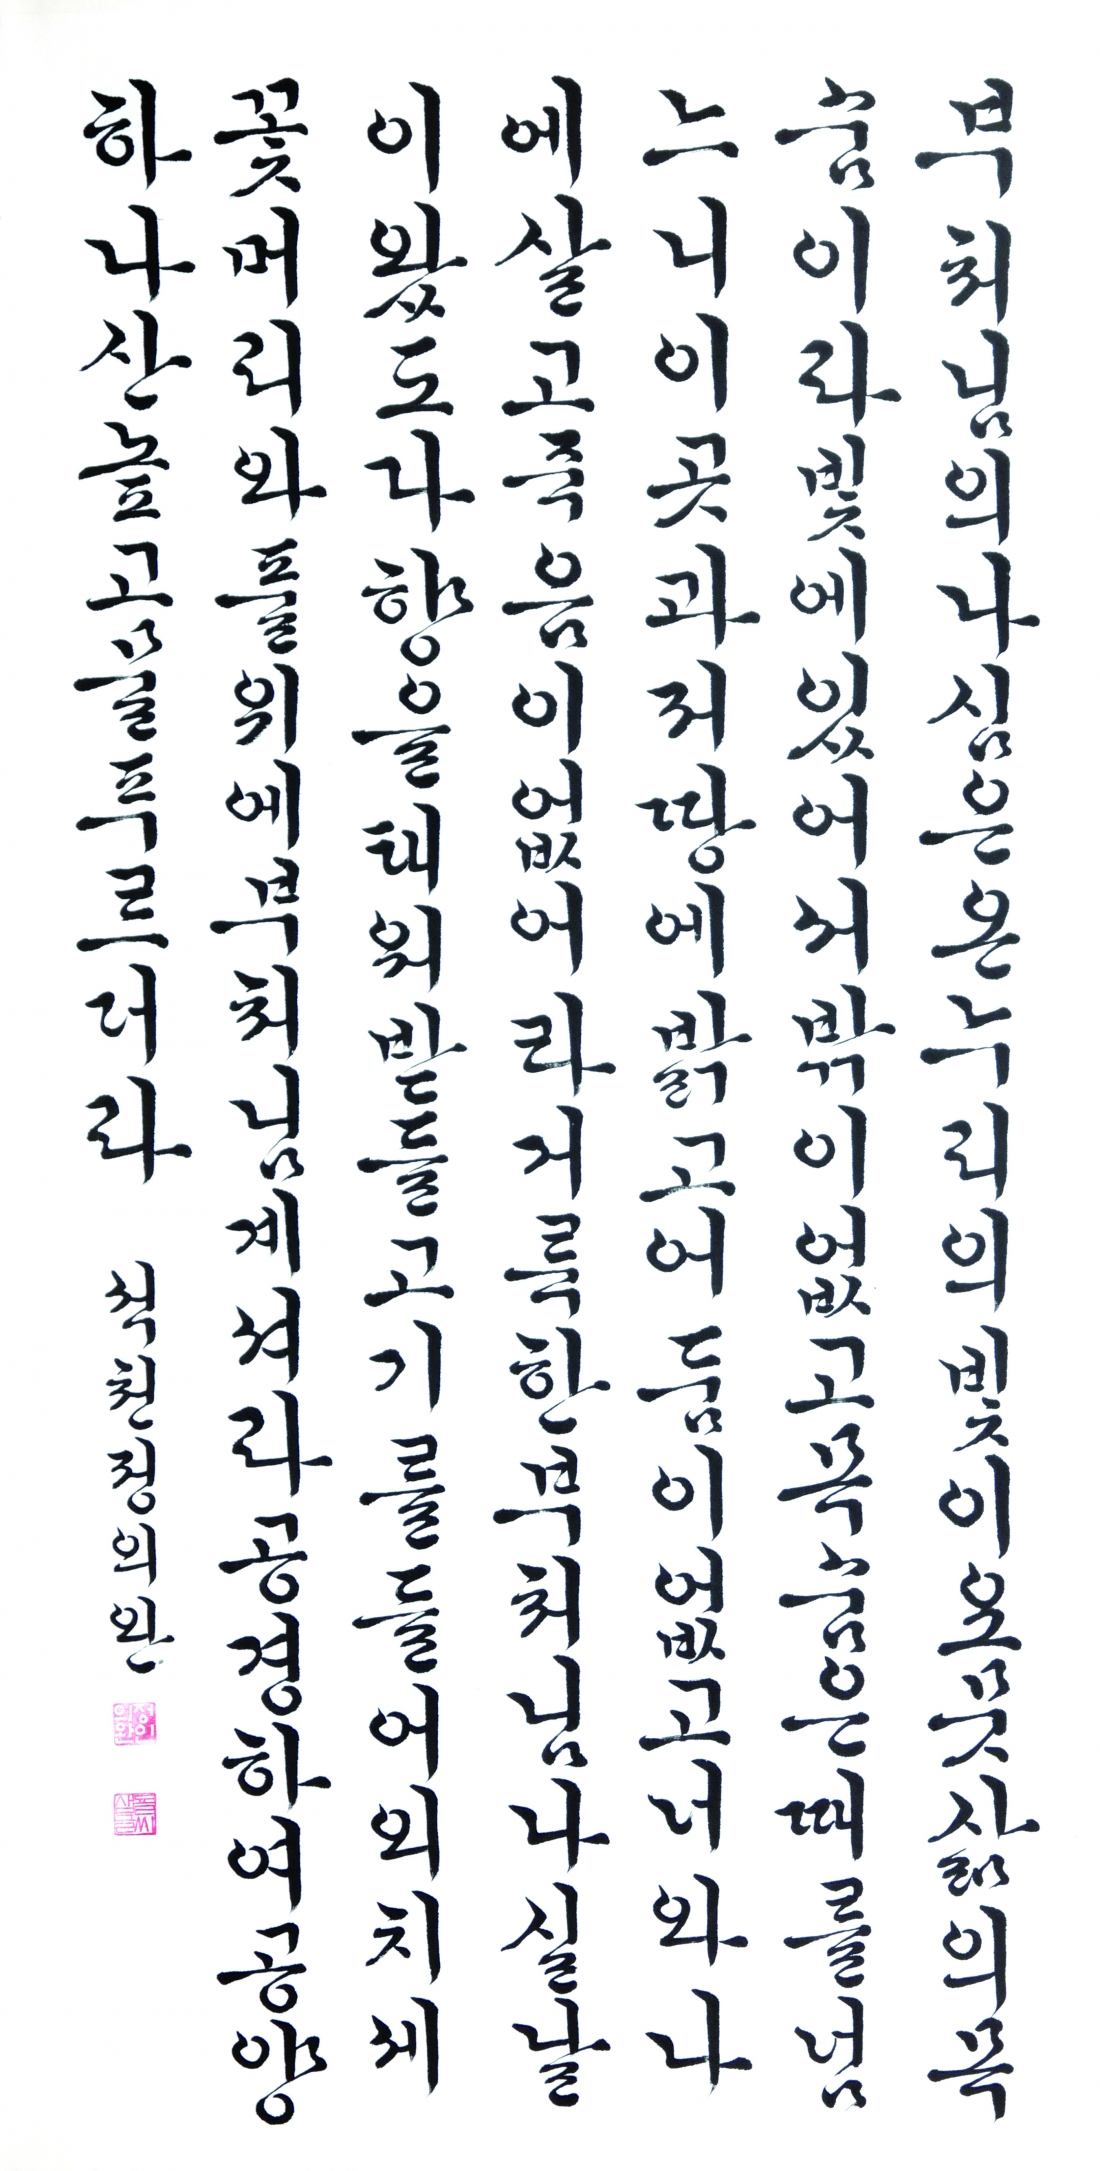 부처님의나심은온누리의빛이오뭇삶의목
숨이라빛에있어서밖이없고목숨은때를넘
느니이곳과저땅에밝고어둠이없고너와나
에살고죽음이없어라거룩한부처님나실날
이왔도다향을태워받들고기를들어외치세
꽃머리와풀위에부처님계셔라공경하여공양
하나산높고물푸르더라 석천정의완